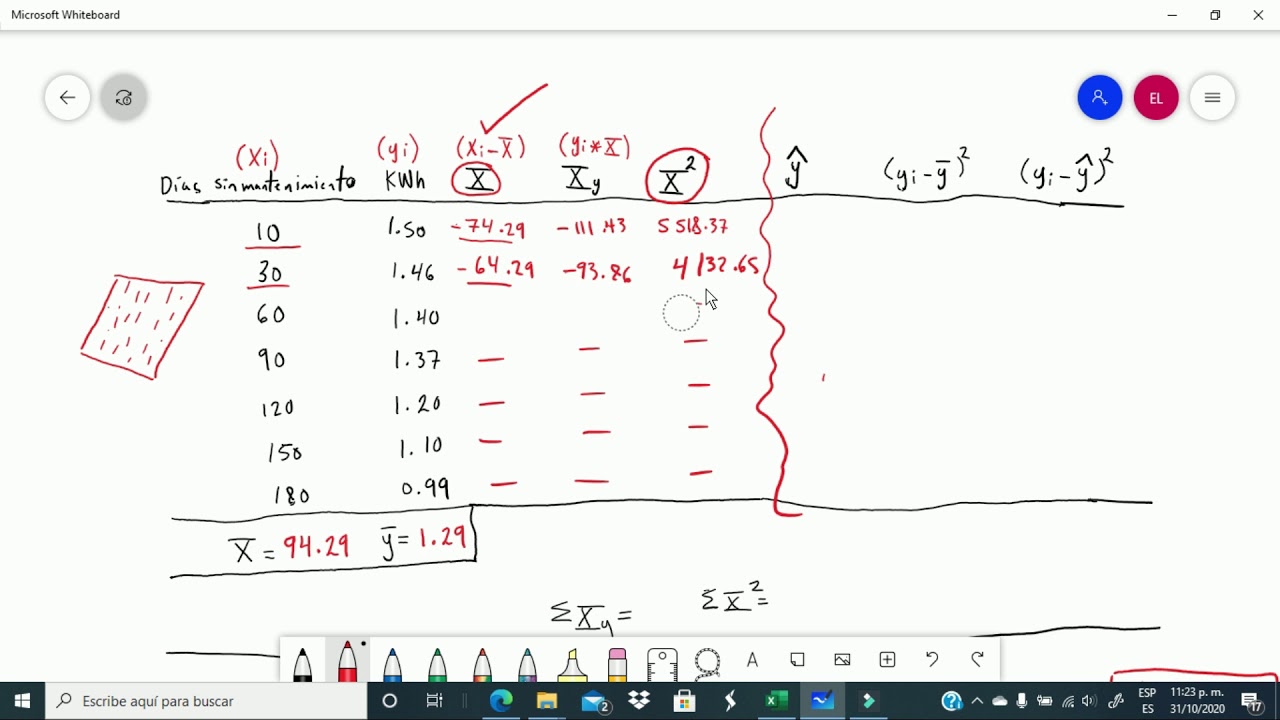 Microsoft Whiteboard
EL
(Xi) (yi) (Xi-X̅) (yi*X̅)
Días sin mantenimiento KWh X̅ X̅y X̅² ŷ (yi-y̅)² (yi-ŷ)²
10 1.50 -74.29 -111.43 5518.37
30 1.46 -64.29 -93.86 4132.65
60 1.40
90 1.37 — — —
120 1.20 — — —
150 1.10 — — —
180 0.99 — — —
X̅ = 94.29 y̅ = 1.29
ΣX̅y = ΣX̅² =
Escribe aquí para buscar
2
ESP 11:23 p. m.
ES 31/10/2020
17